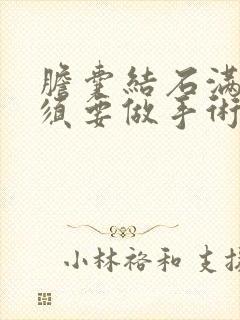 膽囊結石滿
須要做手術
小林裕和支援